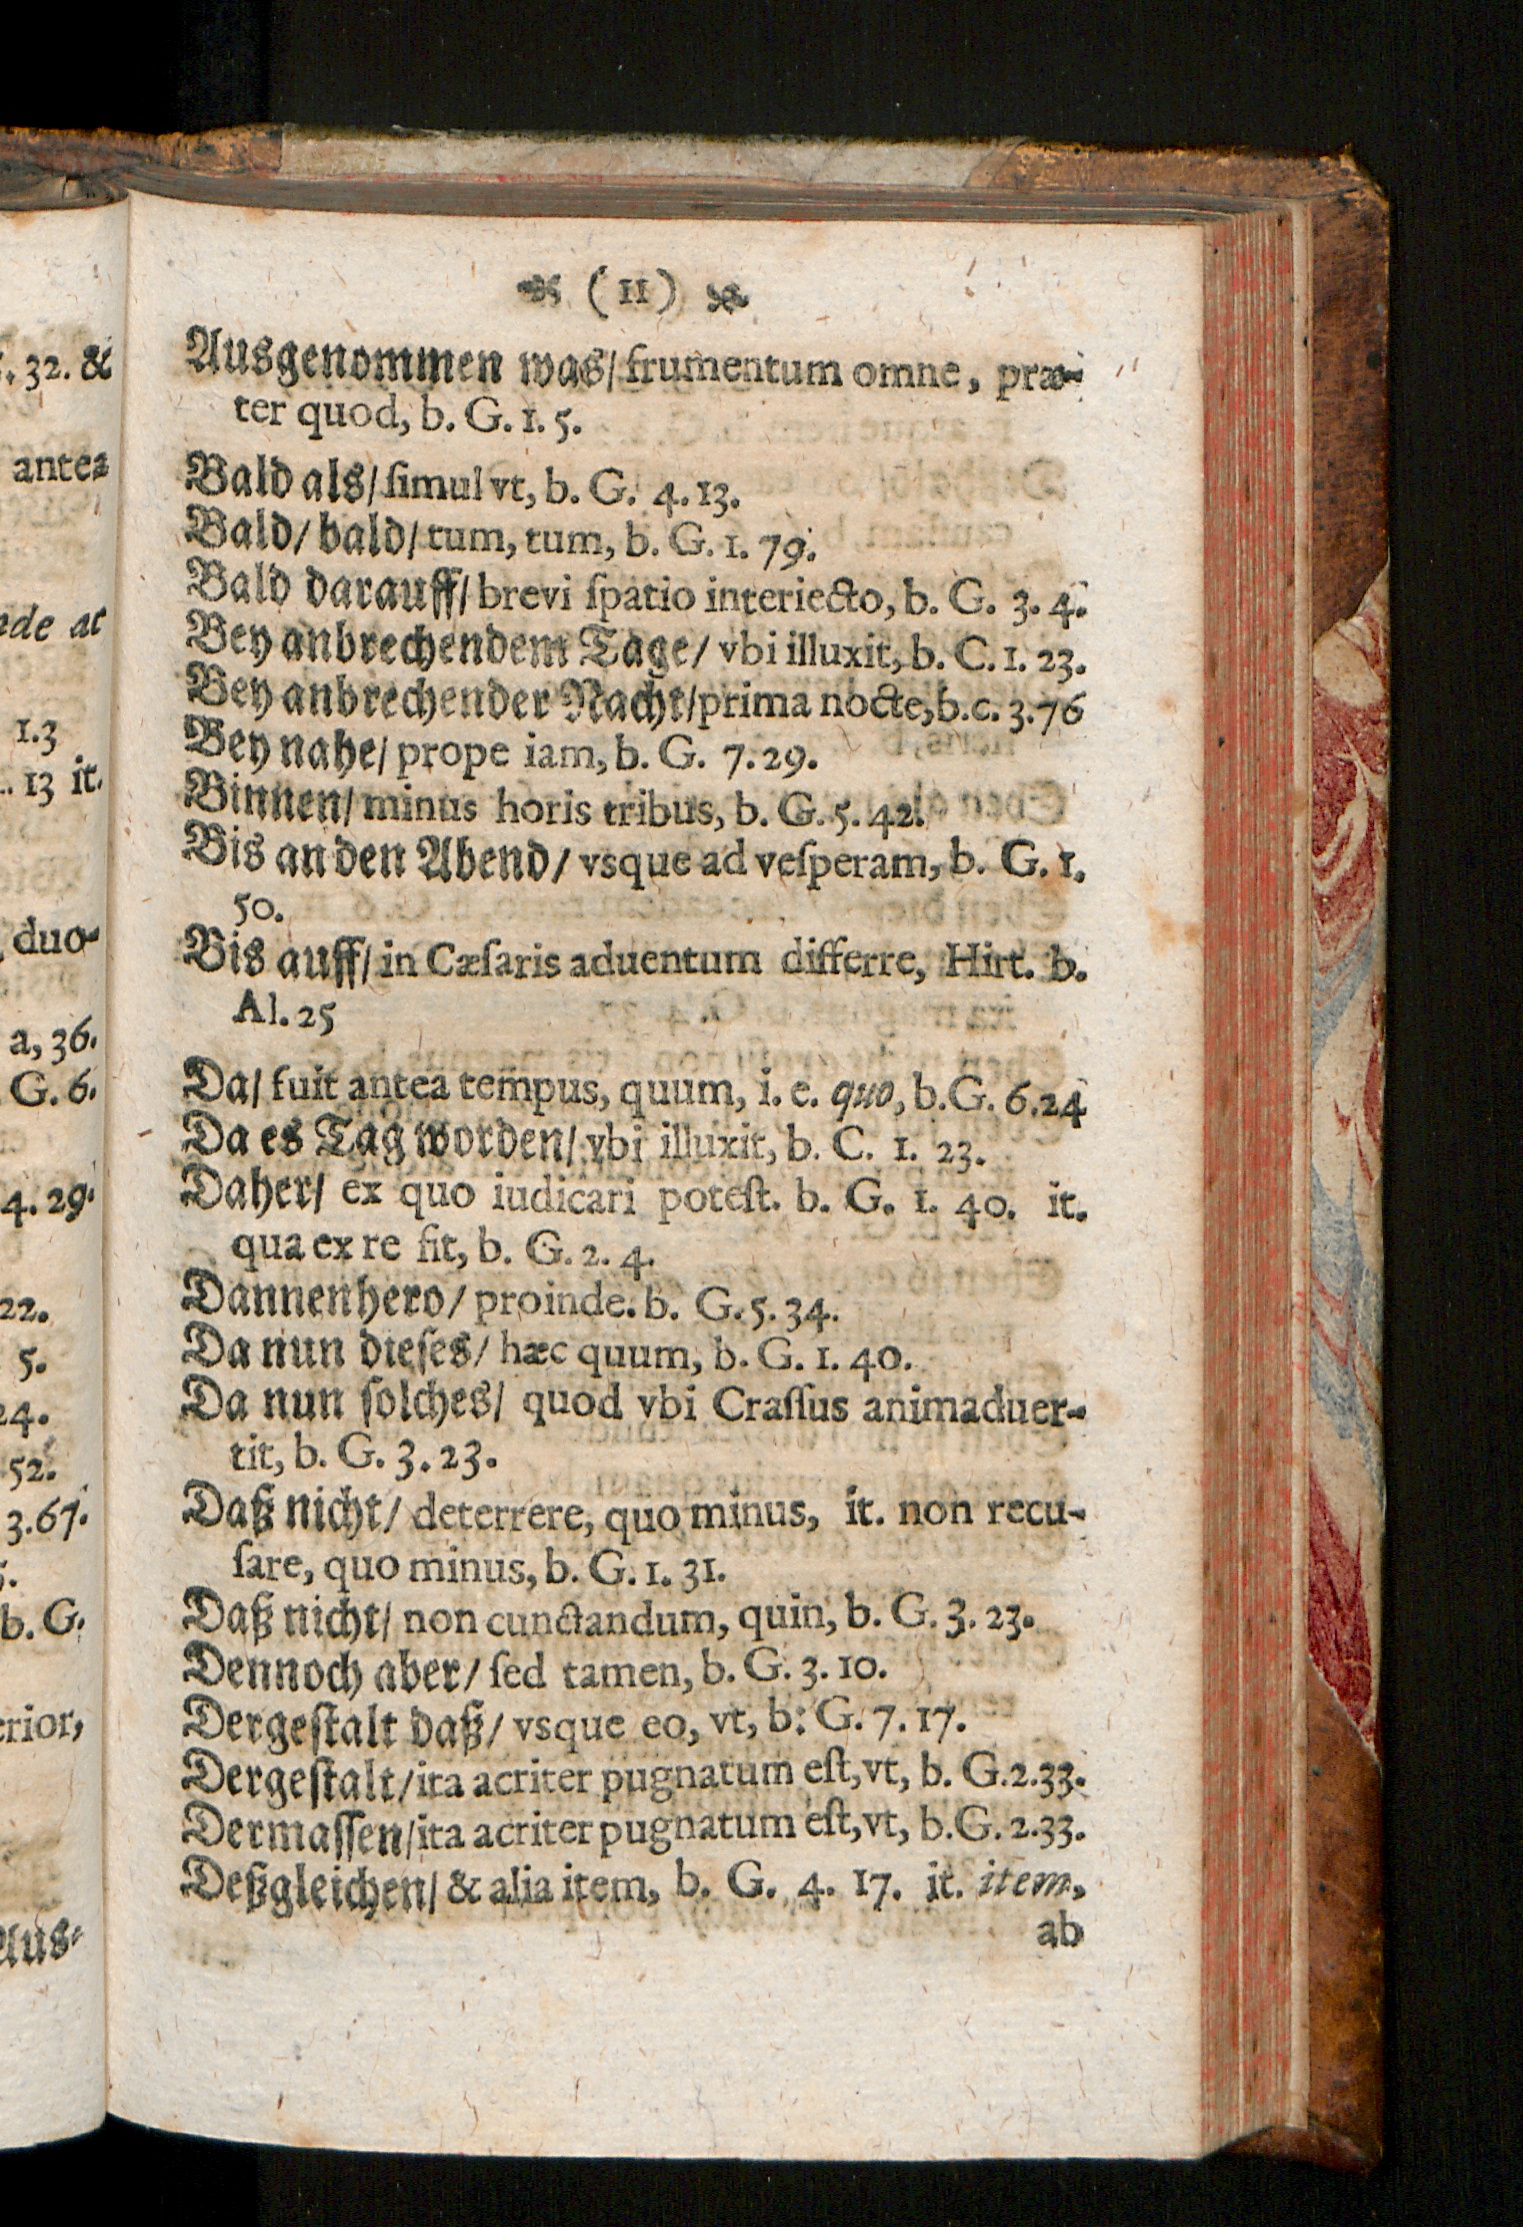 (11)
Ausgenommen was/ frumentum omne, præ-
ter quod, b. G. 1. 5.
Bald als/ ſimul vt, b. G. 4. 13.
Bald/ bald/ tum, tum, b. G. 1. 79.
Bald darauff/ brevi ſpatio interiecto, b. G. 3. 4.
Bey anbrechendem Tage/ vbi illuxit, b. C. 1. 23.
Bey anbrechender Nacht/ prima nocte, b. c. 3. 76
Bey nahe/ prope iam, b. G. 7. 29.
Binnen/ minus horis tribus, b. G. 5. 42.
Bis an den Abend/ vsque ad veſperam, b. G. 1.
50.
Bis auff/ in Cæſaris aduentum differre, Hirt. b.
Al. 25
Da/ fuit antea tempus, quum, i. e. quo, b. G. 6. 24
Da es Tag worden/ vbi illuxit, b. C. 1. 23.
Daher/ ex quo iudicari poteſt. b. G. 1. 40. it.
qua ex re fit, b. G. 2. 4.
Dannenhero/ proinde. b. G. 5. 34.
Da nun dieſes/ hæc quum, b. G. 1. 40.
Da nun ſolches/ quod vbi Craſſus animaduer-
tit, b. G. 3. 23.
Daß nicht/ deterrere, quo minus, it. non recu-
ſare, quo minus, b. G. 1. 31.
Daß nicht/ non cunctandum, quin, b. G. 3. 23.
Dennoch aber/ ſed tamen, b. G. 3. 10.
Dergeſtalt daß/ vsque eo, vt, b: G. 7. 17.
Dergeſtalt/ ita acriter pugnatum eſt, vt, b. G. 2. 33.
Dermaſſen/ ita acriter pugnatum eſt, vt, b. G. 2. 33.
Deßgleichen/ & alia item, b. G. 4. 17. it. item,
ab
32. &
antea
at
1.3
13 it.
duo-
a, 36.
G. 6.
4. 29.
22.
5.
24.
52.
3. 67.
b. G.
Aus-